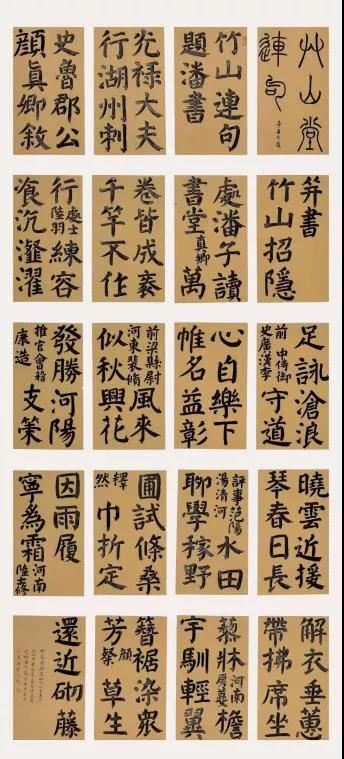 竹山堂
連句
竹山連句
題潘書
光祿大夫
行湖州刺
史魯郡公
顏真卿敘
并書
竹山招隱
處潘子讀
書堂真卿萬
卷皆成袠
千竿不作
行處士陸羽練容
飡沆瀣濯
足詠滄浪
前中侍御史廣漢李守道
心自樂下
帷名益彰
前梁縣尉河東裴脩風來
似秋興花
發勝河陽
推官會稽康造支策
曉雲近援
琴春日長
評事范陽湯清河水田
聊學稼野
圃試條桑
釋然巾折定
因雨履
寧為霜河南陸士修
解衣垂蕙
帶拂席坐
藜牀河南房夔檐
宇馴輕翼
簪裾染衆
芳顏粲草生
還近砌藤